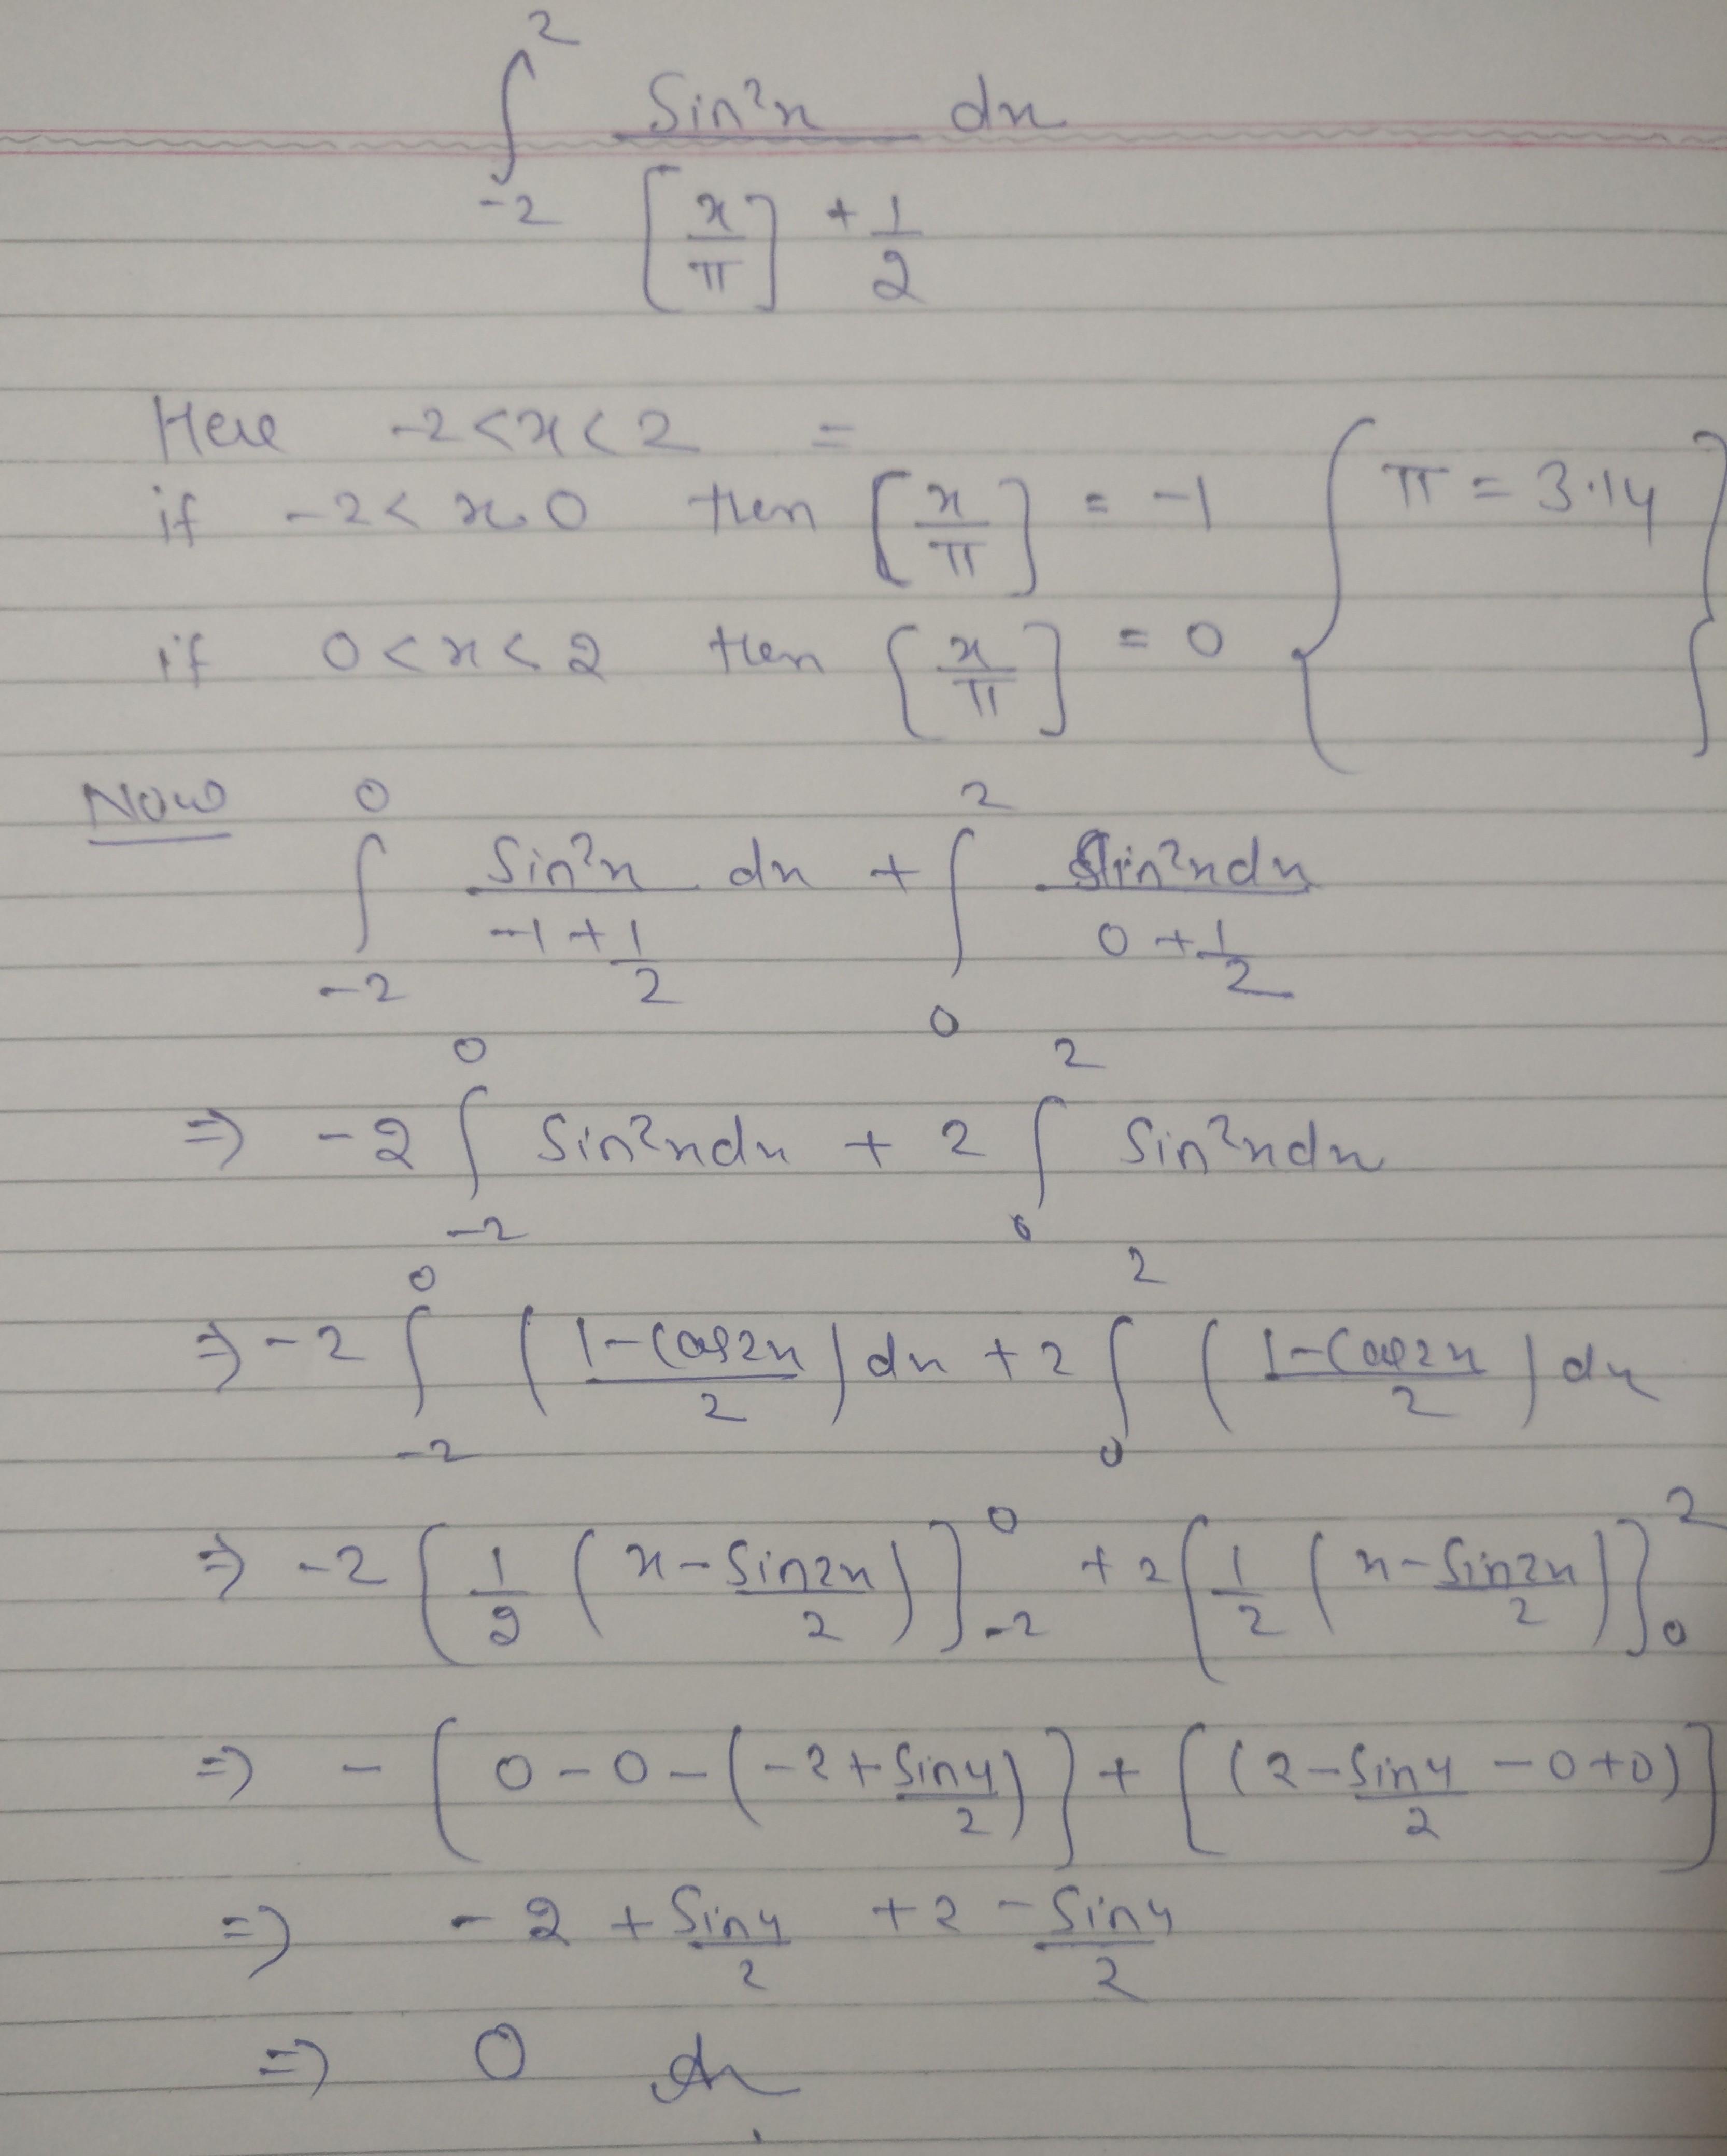 ∫_{-2}^{2} Sin²x / ([x/π] + 1/2) dx
Here -2<x<2 =
if -2< x 0 then [x/π] = -1 { π = 3.14 }
if 0<x<2 then [x/π] = 0
Now ∫_{-2}^{0} Sin²x / (-1+1/2) dx + ∫_{0}^{2} Sin²xdx / (0+1/2)
⇒ -2 ∫_{-2}^{0} Sin²xdx + 2 ∫_{0}^{2} Sin²xdx
⇒ -2 ∫_{-2}^{0} ((1-Cos2x)/2) dx + 2 ∫_{0}^{2} ((1-Cos2x)/2) dx
⇒ -2 [1/2 (x - Sin2x/2)]_{-2}^{0} + 2 [1/2 (x - Sin2x/2)]_{0}^{2}
⇒ - [0-0-(-2+Sin4/2)] + [(2-Sin4/2 -0+0)]
⇒ -2 + Sin4/2 +2 - Sin4/2
⇒ 0